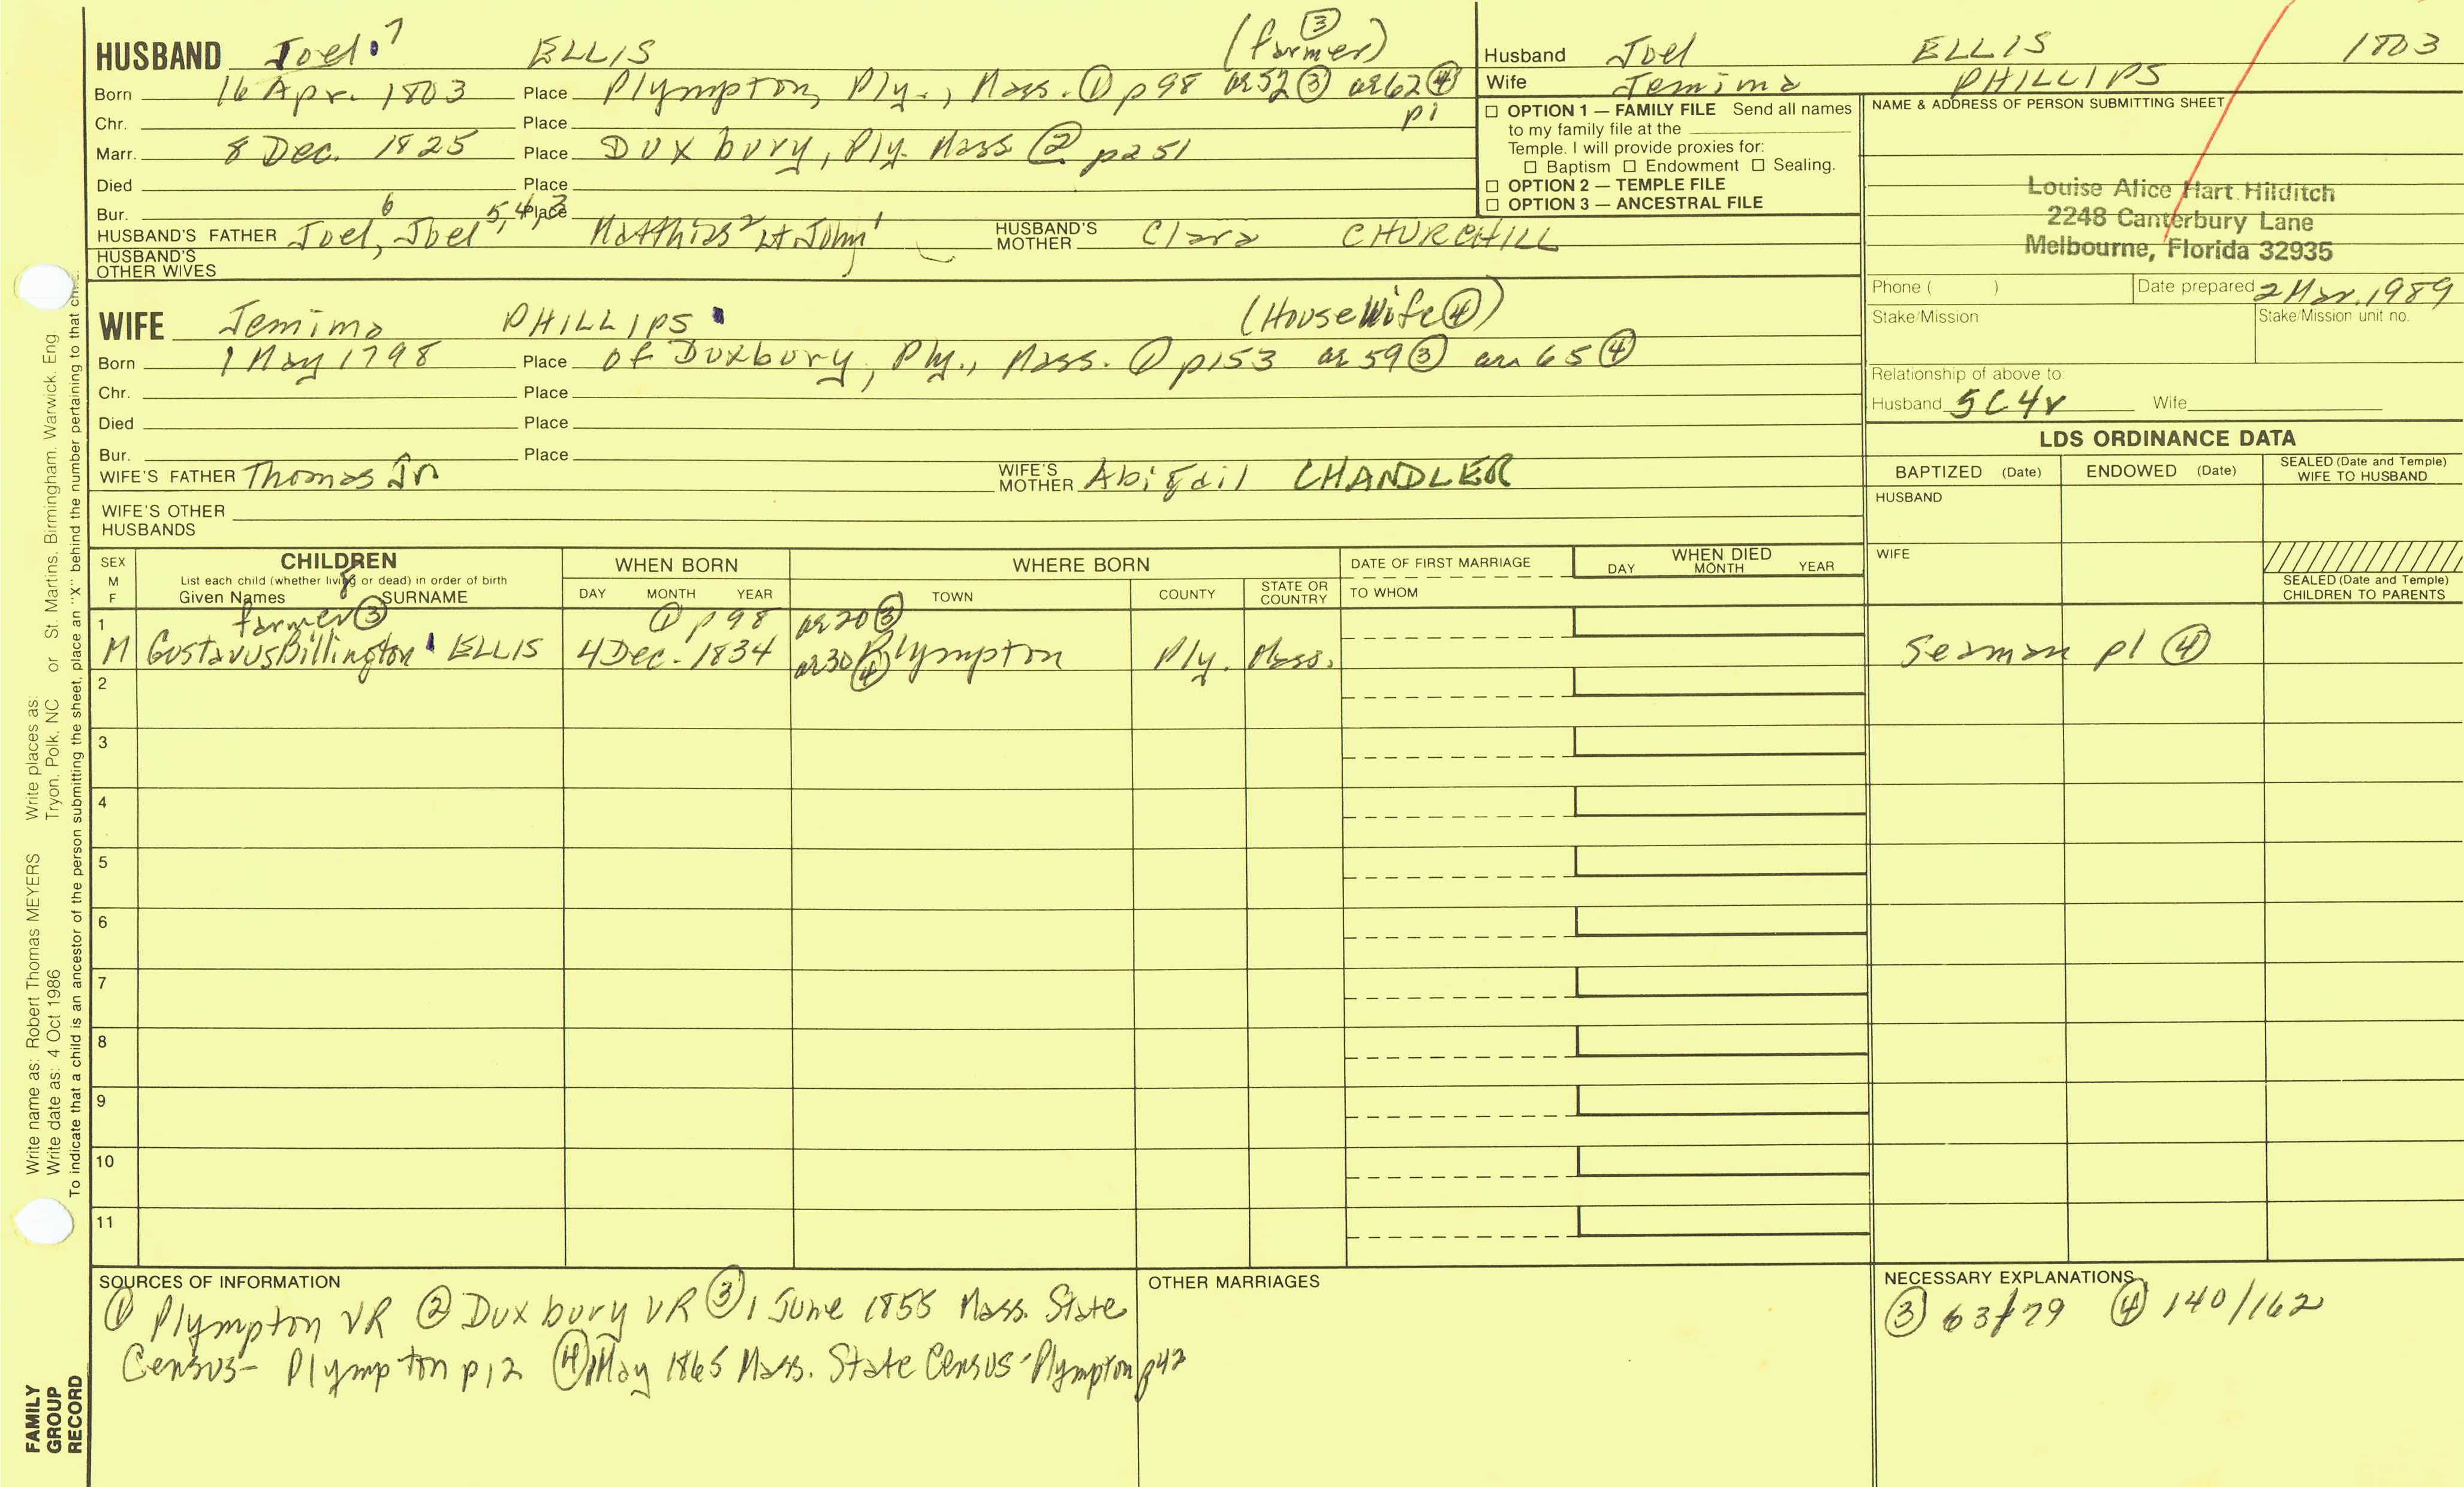 HUSBAND Joel 7 ELLIS (farmer) ③
Born 16 Apr. 1803 Place Plympton, Ply., Mass. ① p98 ae 52 ③ ae 62 ④
p1
Chr. Place
Marr. 8 Dec. 1825 Place Duxbury, Ply. Mass ② p251
Died Place
Bur. Place
HUSBAND'S FATHER Joel, 6 Joel 5,4,3 Matthias 2 Lt John 1 HUSBAND'S MOTHER Clara CHURCHILL
HUSBAND'S OTHER WIVES
WIFE Jemima PHILLIPS (HouseWife ④)
Born 1 May 1798 Place of Duxbury, Ply., Mass. ① p153 ae 59 ③ ae 65 ④
Chr. Place
Died Place
Bur. Place
WIFE'S FATHER Thomas Jr WIFE'S MOTHER Abigail CHANDLER
WIFE'S OTHER HUSBANDS
Husband Joel ELLIS 1803
Wife Jemima PHILLIPS
☐ OPTION 1 — FAMILY FILE Send all names
to my family file at the
Temple. I will provide proxies for:
☐ Baptism ☐ Endowment ☐ Sealing.
☐ OPTION 2 — TEMPLE FILE
☐ OPTION 3 — ANCESTRAL FILE
NAME & ADDRESS OF PERSON SUBMITTING SHEET
Louise Alice Hart Hilditch
2248 Canterbury Lane
Melbourne, Florida 32935
Phone ( ) Date prepared 2 Mar. 1989
Stake/Mission Stake/Mission unit no.
Relationship of above to:
Husband 5C4r Wife
LDS ORDINANCE DATA
BAPTIZED (Date) ENDOWED (Date) SEALED (Date and Temple) WIFE TO HUSBAND
HUSBAND
WIFE
SEALED (Date and Temple)
CHILDREN TO PARENTS
SEX M F CHILDREN WHEN BORN WHERE BORN DATE OF FIRST MARRIAGE WHEN DIED
List each child (whether living or dead) in order of birth
8
Given Names SURNAME DAY MONTH YEAR TOWN COUNTY STATE OR COUNTRY TO WHOM DAY MONTH YEAR
1 farmer ③ ① p98 ae 20 ③
M Gustavus Billington ELLIS 4 Dec. 1834 ae 30 ④ Plympton Ply. Mass. Seaman p1 ④
2
3
4
5
6
7
8
9
10
11
SOURCES OF INFORMATION
① Plympton VR ② Duxbury VR ③ 1 June 1855 Mass. State
Census- Plympton p12 ④ 1 May 1865 Mass. State Census-Plympton p42
OTHER MARRIAGES
NECESSARY EXPLANATIONS
③ 63/79 ④ 140/162
Write name as: Robert Thomas MEYERS Write places as:
Write date as: 4 Oct 1986 Tryon, Polk, NC or St. Martins, Birmingham, Warwick, Eng
To indicate that a child is an ancestor of the person submitting the sheet, place an "X" behind the number pertaining to that
FAMILY
GROUP
RECORD